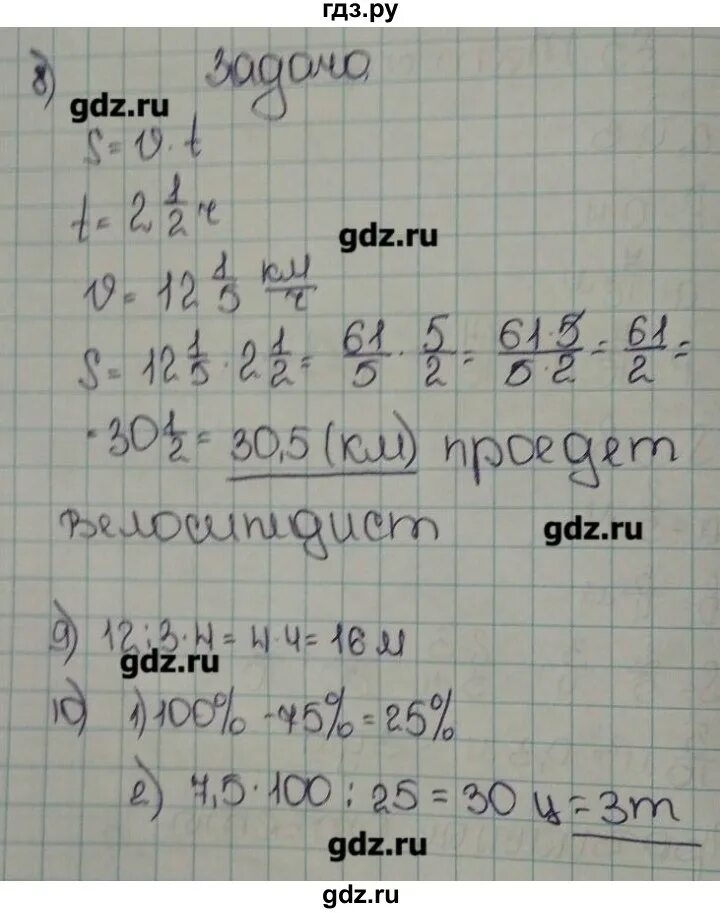 гдз.ру
8) Задача
gdz.ru
S = v · t
t = 2 1/2 ч
gdz.ru
v = 12 1/5 км/ч
S = 12 1/5 · 2 1/2 = 61/5 · 5/2 = 61·5/5·2 = 61/2 =
= 30 1/2 = 30,5 (км) проедет
велосипедист
gdz.ru
9) 12 : 3 · 4 = 4 · 4 = 16 м
gdz.ru
10) 1) 100% - 75% = 25%
2) 7,5 · 100 : 25 = 30 ц = 3т
gdz.ru
gdz.ru